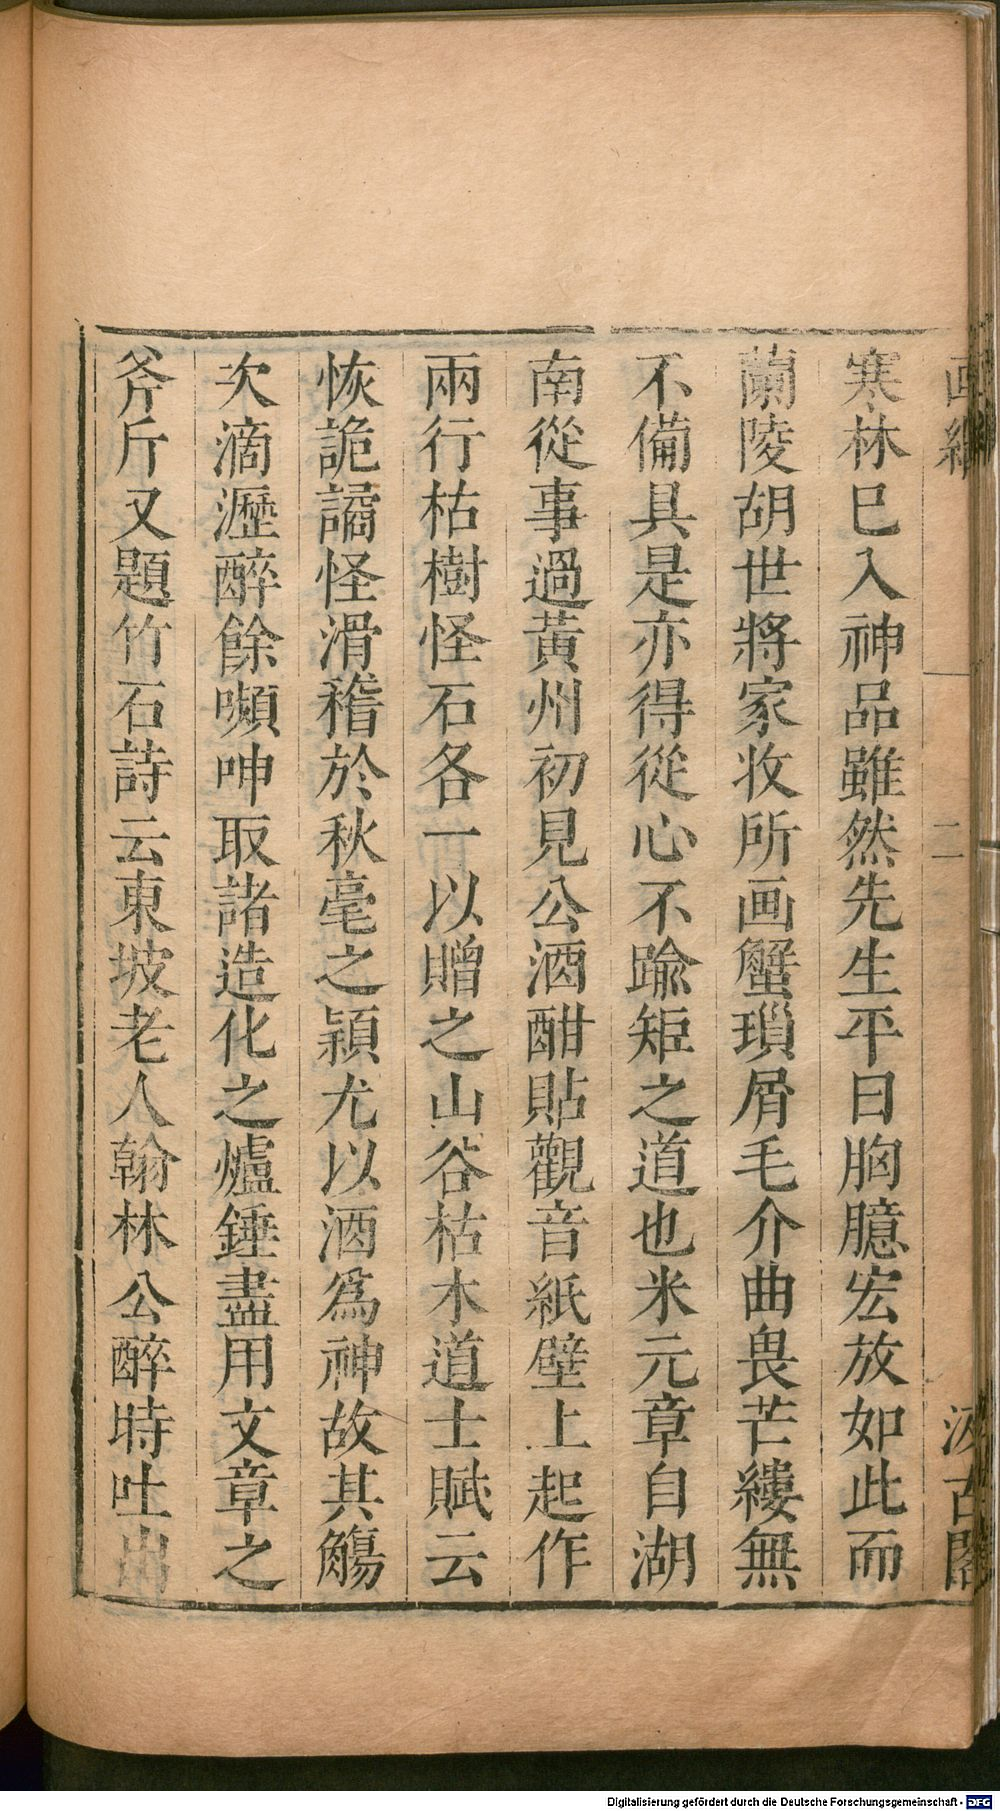 画繼 一 二 汲古閣
寒林巳入神品雖然先生平日胸臆宏放如此而
蘭陵胡世將家收所画蟹瑣屑毛介曲畏芒縷無
不備具是亦得從心不踰矩之道也米元章自湖
南從事過黃州初見公酒酣貼觀音紙壁上起作
兩行枯樹怪石各一以贈之山谷枯木道士賦云
恢詭譎怪滑稽於秋毫之穎尤以酒爲神故其觴
次滴瀝醉餘嚬呻取諸造化之爐錘盡用文章之
斧斤又題竹石詩云東坡老人翰林公醉時吐出
Digitalisierung gefördert durch die Deutsche Forschungsgemeinschaft - DFG